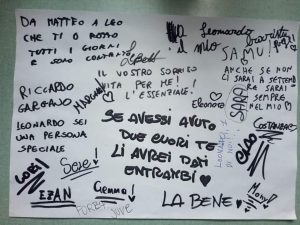 DA MATTEO A LEO
CHE TI O ROTTO
TUTTI I GIORNI
E SONO CONTENTO
RICCARDO
GARGANO
MARGHE
LEONARDO SEI
UNA PERSONA
SPECIALE
IL VOSTRO SORRISO
VITA PER ME!
L'ESSENZIALE.
Leonardo
il mio
SAMU!
ANCHE SE NON
CI SARAI A SETTEMBRE
SARAI
SEMPRE
NEL MIO
Eleonora
SARA
COSTANZA
CIAO
SE AVESSI AVUTO
DUE CUORI TE
LI AVREI DATI
ENTRAMBI
LA BENE
EZAN
Gemma!
FORZA
JUVE